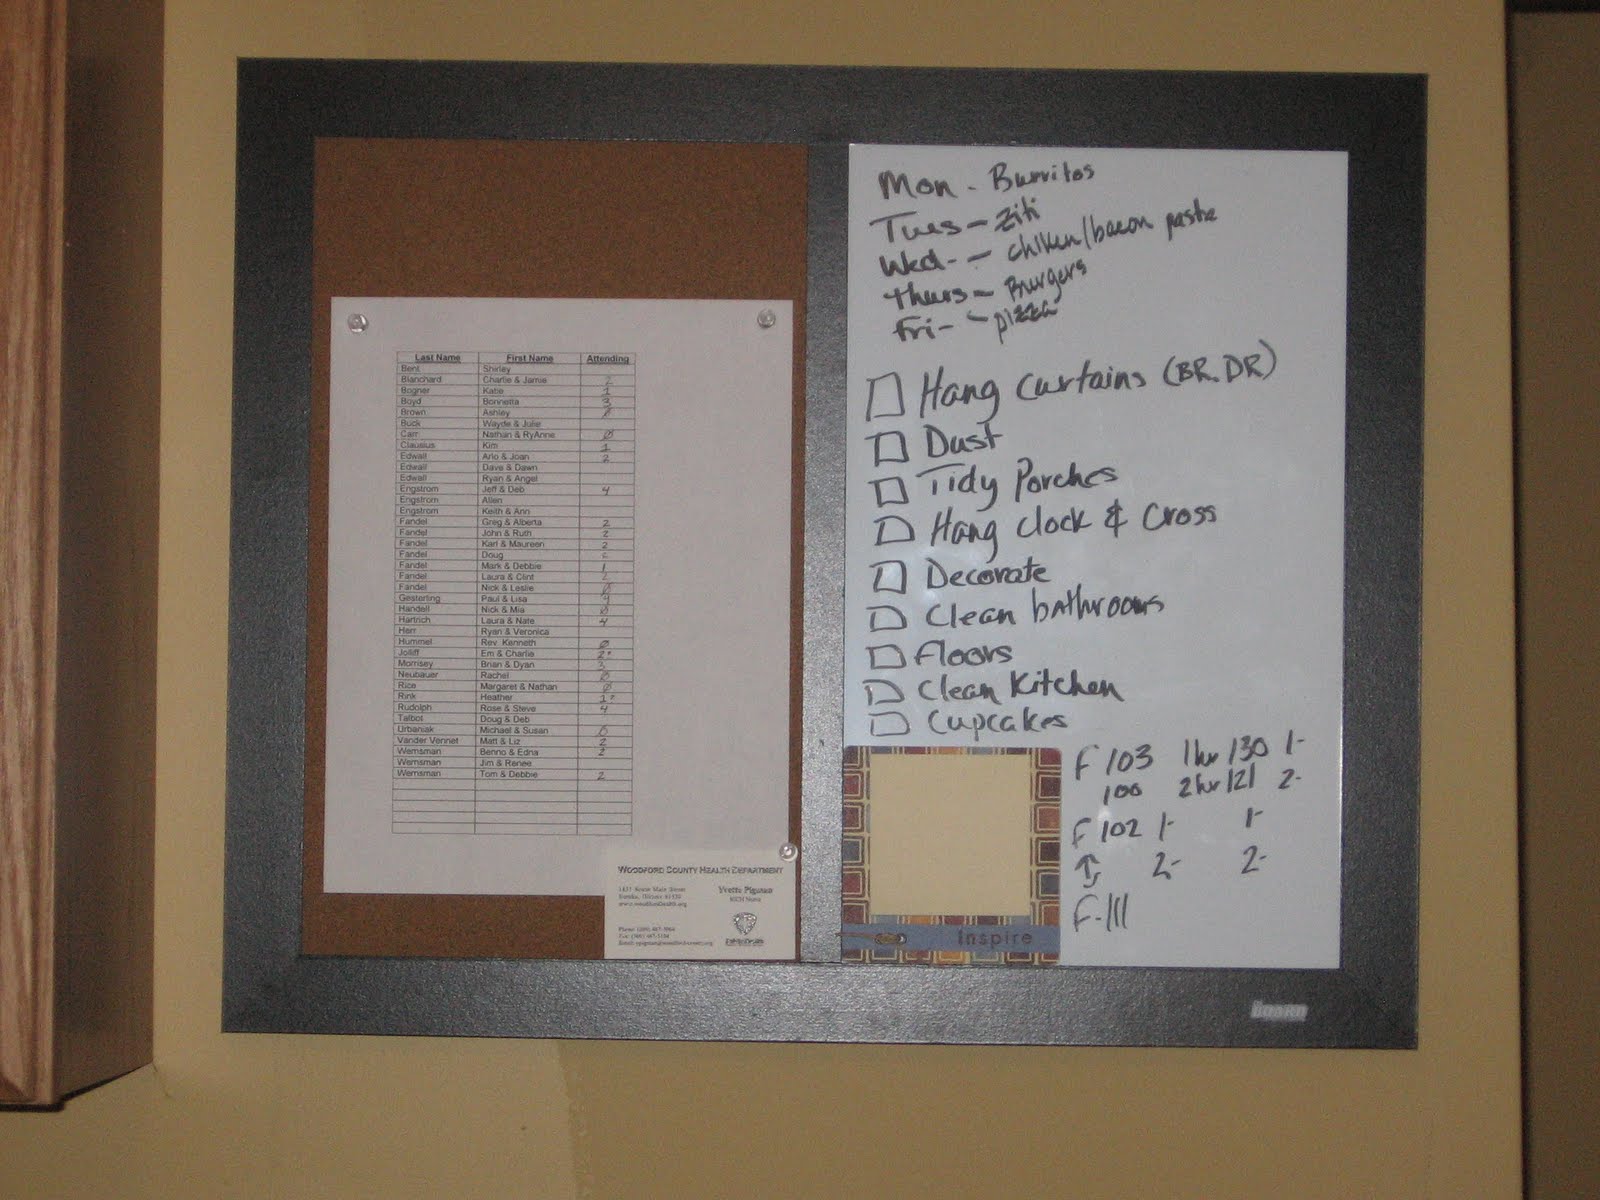 Last Name First Name Attending
Bent Shirley
Blanchard Charlie & Jamie 2
Bogner Katie 1
Boyd Bonnetta 3
Brown Ashley
Buck Wayde & Julie
Carr Nathan & RyAnne 0
Clausius Kim 1
Edwall Arlo & Joan 2
Edwall Dave & Dawn
Edwall Ryan & Angel
Engstrom Jeff & Deb 4
Engstrom Allen
Engstrom Keith & Ann
Fandel Greg & Alberta 2
Fandel John & Ruth 2
Fandel Karl & Maureen 2
Fandel Doug
Fandel Mark & Debbie 1
Fandel Laura & Clint 2
Fandel Nick & Leslie 0
Gesterling Paul & Lisa
Handell Nick & Mia 0
Hartrich Laura & Nate 4
Herr Ryan & Veronica
Hummel Rev. Kenneth 0
Jolliff Em & Charlie 2
Morrisey Brian & Dyan 3
Neubauer Rachel 0
Rice Margaret & Nathan 0
Rink Heather 1
Rudolph Rose & Steve 4
Talbot Doug & Deb
Urbaniak Michael & Susan 0
Vander Vennet Matt & Liz 2
Wemsman Benno & Edna 2
Wemsman Jim & Renee
Wemsman Tom & Debbie 2
WOODFORD COUNTY HEALTH DEPARTMENT
Mon - Burritos
Tues - Ziti
Wed - - chiken/bacon pasta
thurs - Burgers
Fri - - pizza
Hang curtains (BR. DR)
Dust
Tidy Porches
Hang clock & cross
Decorate
Clean bathrooms
Floors
Clean Kitchen
Cupcakes
F 103 1hr/130 1-
100 2hr/121 2-
F 102 1- 1-
2- 2-
F-111
Inspire
board